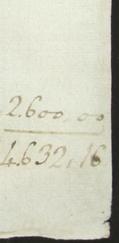 2.600,00
4.632,16